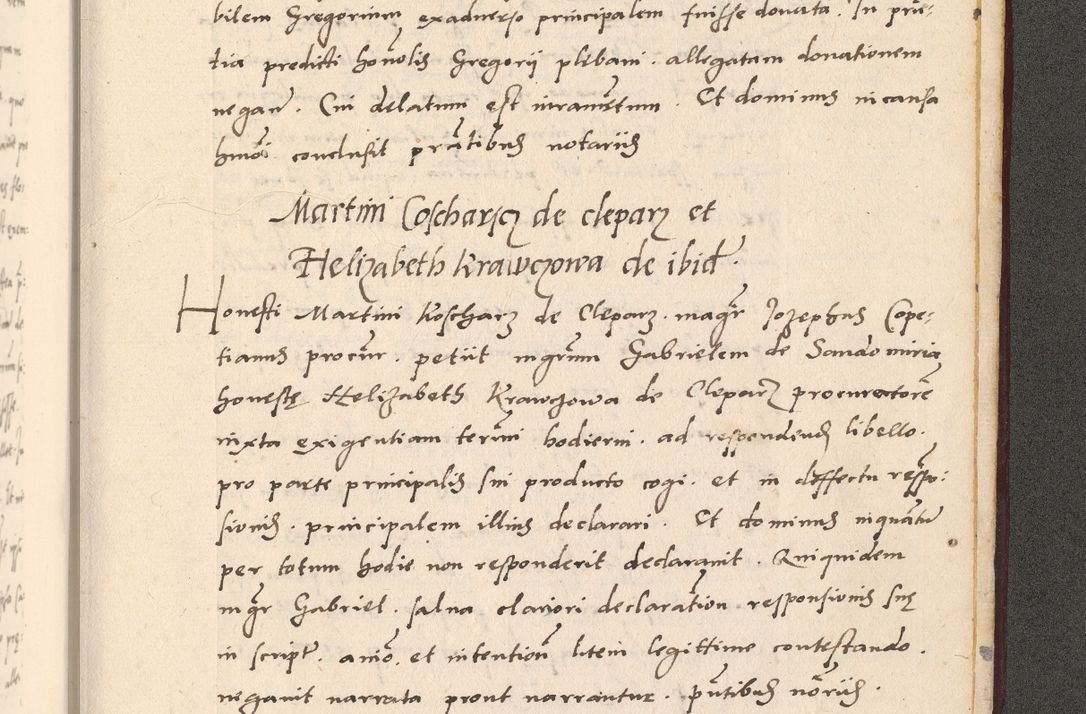 bilem Gregorium exaduerso principalem fuisse donata. In prae-
tia predicti honolis Gregorij plebani. allegatam donationem
negan. Cui delatum est iurametum. Et dominus in causa
hmoi conclusit pntibus notariis
Martini Coscharz de clepar et
Helizabeth Krawczowa de ibid.
Honesti Martini Koscharz de Cleparz. magr Jozephus Cope-
tianus procur. petiit mgrum Gabrielem de Sandomiria
honeste Helizabeth Krawczowa de Cleparz procuratore
iuxta exigentiam termi hodierni. ad respondendu libello.
pro parte principalis sui producto cogi. et in deffectu respo-
sionis. principalem illius declarari. Et dominus inquatu
per totum hodie non responderit declarauit. Quiquidem
mgr Gabriel. salua clariori declaration responsionis sue
in script. anio. et intention litem legittime contestando.
negauit narrata prout narrantur. pntibus noriis.